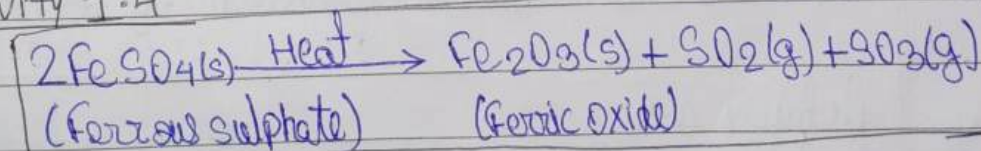 2FeSO4(s) Heat → Fe2O3(s) + SO2(g) + SO3(g)
(Ferrous sulphate) (Ferric Oxide)